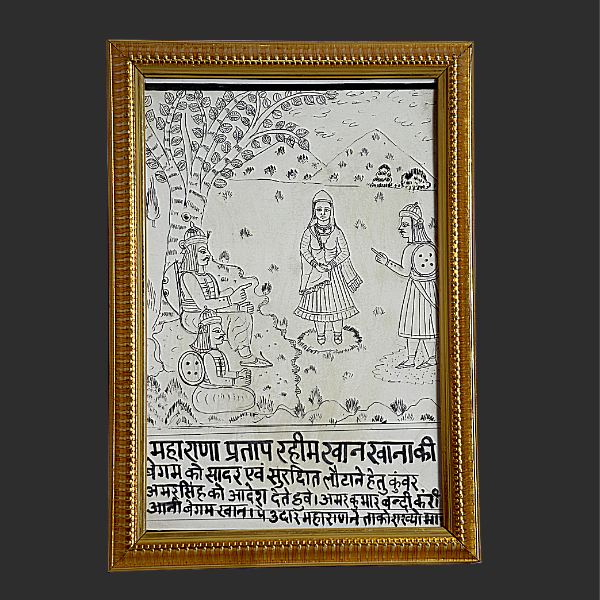 महाराणा प्रताप रहीम खान खाना की
बेगम को सादर एवं सुरक्षित लौटाने हेतु कुंवर
अमरसिंह को आदेश देते हुवे। अमर कुमार बन्दी करी
आनी बेगम खान। प उदार महाराण ने ताको राख्यो मा